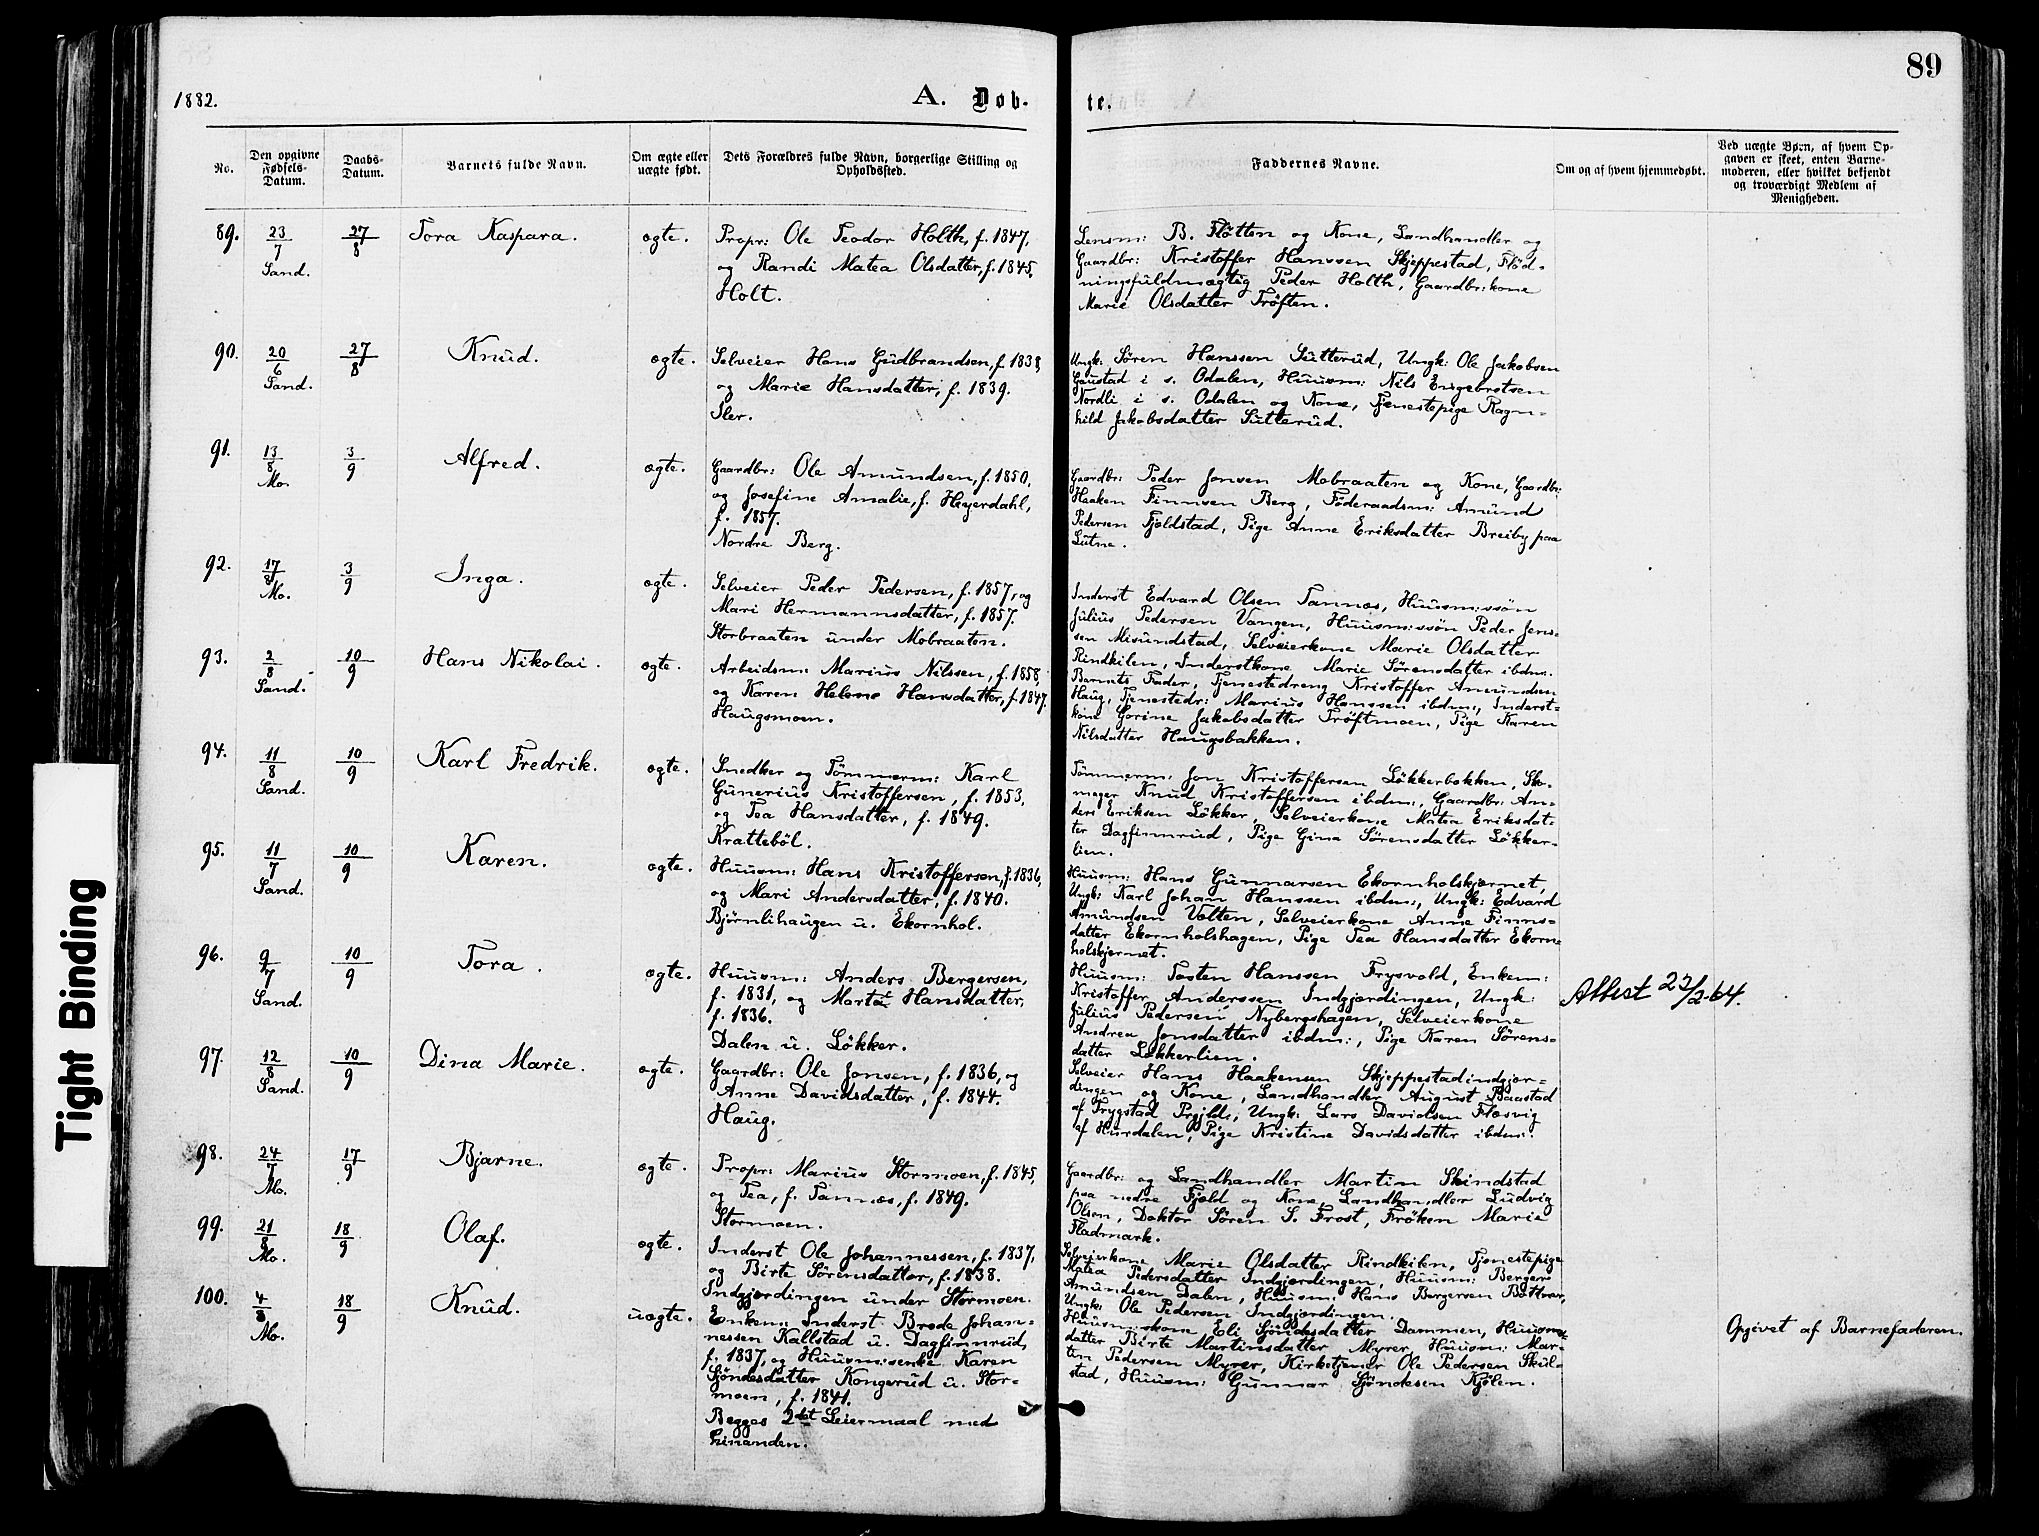 89
1882.
A. Døb-
te.
No.
Den opgivne
Fødsels-
Datum.
Daabs-
Datum.
Barnets fulde Navn.
Om ægte eller
uægte født.
Dets Forældres fulde Navn, borgerlige Stilling og
Opholdssted.
Faddernes Navne.
Om og af hvem hjemmedøbt.
Ved uægte Børn, af hvem Op-
gaven er skeet, enten Barne-
moderen, eller hvilket bekjendt
og troværdigt Medlem af
Menigheden.
89.
23/7
Sand.
27/8
Tora Kaspara.
ægte.
Propr: Ole Teodor Holth, f. 1847,
og Randi Matea Olsdatter, f. 1845,
Holt.
Lensm: B. Fløtten og Kone, Landhandler og
Gaardbr: Kristoffer Hanssen Skjeppestad, Flød-
ningsfuldmægtig Peder Holth, Gaardbr:kone
Marie Olsdatter Trøften.
90.
20/6
Sand.
27/8
Knud.
ægte.
Selveier Hans Gudbrandsen, f. 1838,
og Marie Hansdatter, f. 1839.
Sler.
Ungk: Søren Hanssen Sutterud, Ungk: Ole Jakobsen
Gaustad i s. Odalen, Huusm: Nils Engebretsen
Nordli i s. Odalen og Kone, Tjenestepige Ragn-
hild Jakobsdatter Sutterud.
91.
13/8
Mo.
3/9
Alfred.
ægte.
Gaardbr: Ole Amundsen, f. 1850,
og Josefine Amalie, f. Heyerdahl,
f. 1857.
Nordre Berg.
Gaardbr: Peder Jonsen Mobraaten og Kone, Gaardbr:
Haaken Finnsen Berg, Føderaadsm: Amund
Pedersen Fjeldstad, Pige Anne Eriksdatter Breiby paa
Lutne.
92.
17/8
Mo.
3/9
Inga.
ægte.
Selveier Peder Pedersen, f. 1857, og
Mari Hermannsdatter, f. 1857.
Storbraaten under Mobraaten.
Inderst Edvard Olsen Tannæs, Huusm:søn
Julius Pedersen Vangen, Huusm:søn Peder Jens-
sen Misundstad, Selveierkone Marie Olsdatter
Rindkilen, Inderstkone Marie Sørensdatter ibdm:
93.
2/8
Sand.
10/9
Hans Nikolai.
ægte.
Arbeidsm: Marius Nilssen, f. 1858,
og Karen Helene Hansdatter, f. 1847.
Haugsmoen.
Barnets Fader, Tjenestedreng Kristoffer Amundsen
Haug, Tjenestedr: Marius Hanssen ibdm:, Inderst-
kone Gorine Jakobsdatter Trøftmoen, Pige Karen
Nilsdatter Haugsbakken.
94.
11/8
Sand.
10/9
Karl Fredrik.
ægte.
Snedker og Tømmerm: Karl
Gunerius Kristoffersen, f. 1853,
og Tea Hansdatter, f. 1849.
Krattebøl.
Tømmerm: Jon Kristoffersen Løkkerbakken, Sko-
mager Knud Kristoffersen ibdm:, Gaardbr: An-
ders Eriksen Løkker, Selveierkone Matea Eriksdat-
ter Dagfinnrud, Pige Gina Sørensdatter Løkker-
lien.
95.
11/7
Sand.
10/9
Karen.
ægte.
Huusm: Hans Kristoffersen, f. 1836,
og Mari Andersdatter, f. 1840.
Bjørnlihaugen u. Ekornhol.
Huusm: Hans Gunnarsen Ekornholskjernet,
Ungk: Karl Johan Hanssen ibdm:, Ungk: Edvard
Amundsen Velten, Selveierkone Anne Finns-
datter Ekornholshagen, Pige Tea Hansdatter Ekorn-
holskjernet.
96.
9/7
Sand.
10/9
Tora.
ægte.
Huusm: Anders Bergersen,
f. 1831, og Marta Hansdatter,
f. 1836.
Dalen u. Løkker.
Huusm: Tosten Hanssen Frysvold, Enkem:
Kristoffer Anderssen Indgjerdingen, Ungk:
Julius Pedersen Nybergshagen, Selveierkone
Andrea Jonsdatter ibdm:, Pige Karen Sørens-
datter Løkkerlien.
Attest 23/2-64.
97.
12/8
Sand.
10/9
Dina Marie.
ægte.
Gaardbr: Ole Jonsen, f. 1836, og
Anne Davidsdatter, f. 1844.
Haug.
Selveier Hans Haakensen Skjeppestadindgjer-
dingen og Kone, Landhandler August Baastad
af Trygstad Prgjld:, Ungk: Lars Davidsen Flæsvig
af Hurdalen, Pige Kristine Davidsdatter ibdm:
98.
24/7
Mo.
17/9
Bjarne.
ægte.
Propr: Marius Stormoen, f. 1845,
og Tea, f. Tannæs, f. 1849.
Stormoen.
Gaardbr: og Landhandler Martin Skindstad
paa nedre Fjeld og Kone, Landhandler Ludvig
Olsen, Doktor Søren S. Frost, Frøken Marie
Fladmark.
99.
21/8
Mo.
18/9
Olaf.
ægte.
Inderst Ole Johannessen, f. 1837,
og Birte Sørensdatter, f. 1838.
Indgjerdingen under Stormoen.
Selveierkone Marie Olsdatter Rindkilen, Tjenestepige
Matea Pedersdatter Indgjerdingen, Huusm: Berger
Amundsen Dalen, Huusm: Hans Bergersen
Ungk: Ole Pedersen Indgjerdingen.
100.
4/8
Mo.
18/9
Knud.
uægte.
Enkem: Inderst Brede Johan-
nessen Kallstad u. Dagfinnrud,
f. 1837, og Huusm:senke Karen
Sjøndesdatter Kongerud u. Stor-
moen, f. 1841.
Begges 2det Leiermaal med
hinanden.
Huusm:skone Eli Sjøndesdatter Dammen, Huusm:
datter Birte Martinsdatter Myrer, Huusm: Mar-
tin Pedersen Myrer, Kirketjener Ole Pedersen Skul-
stad, Huusm: Gunnar Sjøndesen Kjølen.
Opgivet af Barnefaderen.
Tight Binding